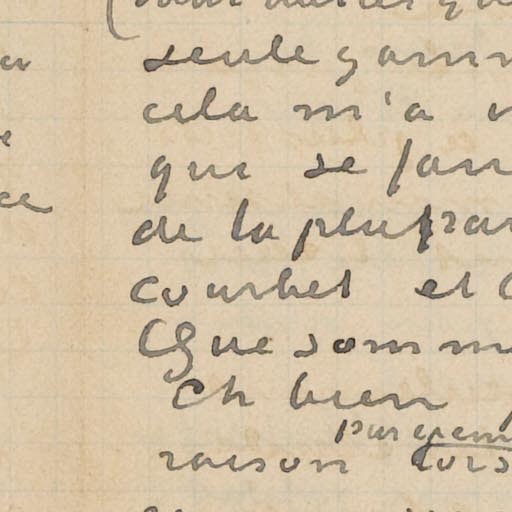 seule gamm
cela m'a
qui se fan
de la plupar
courbet et
Que somm
Eh bien
par exem
raison lors